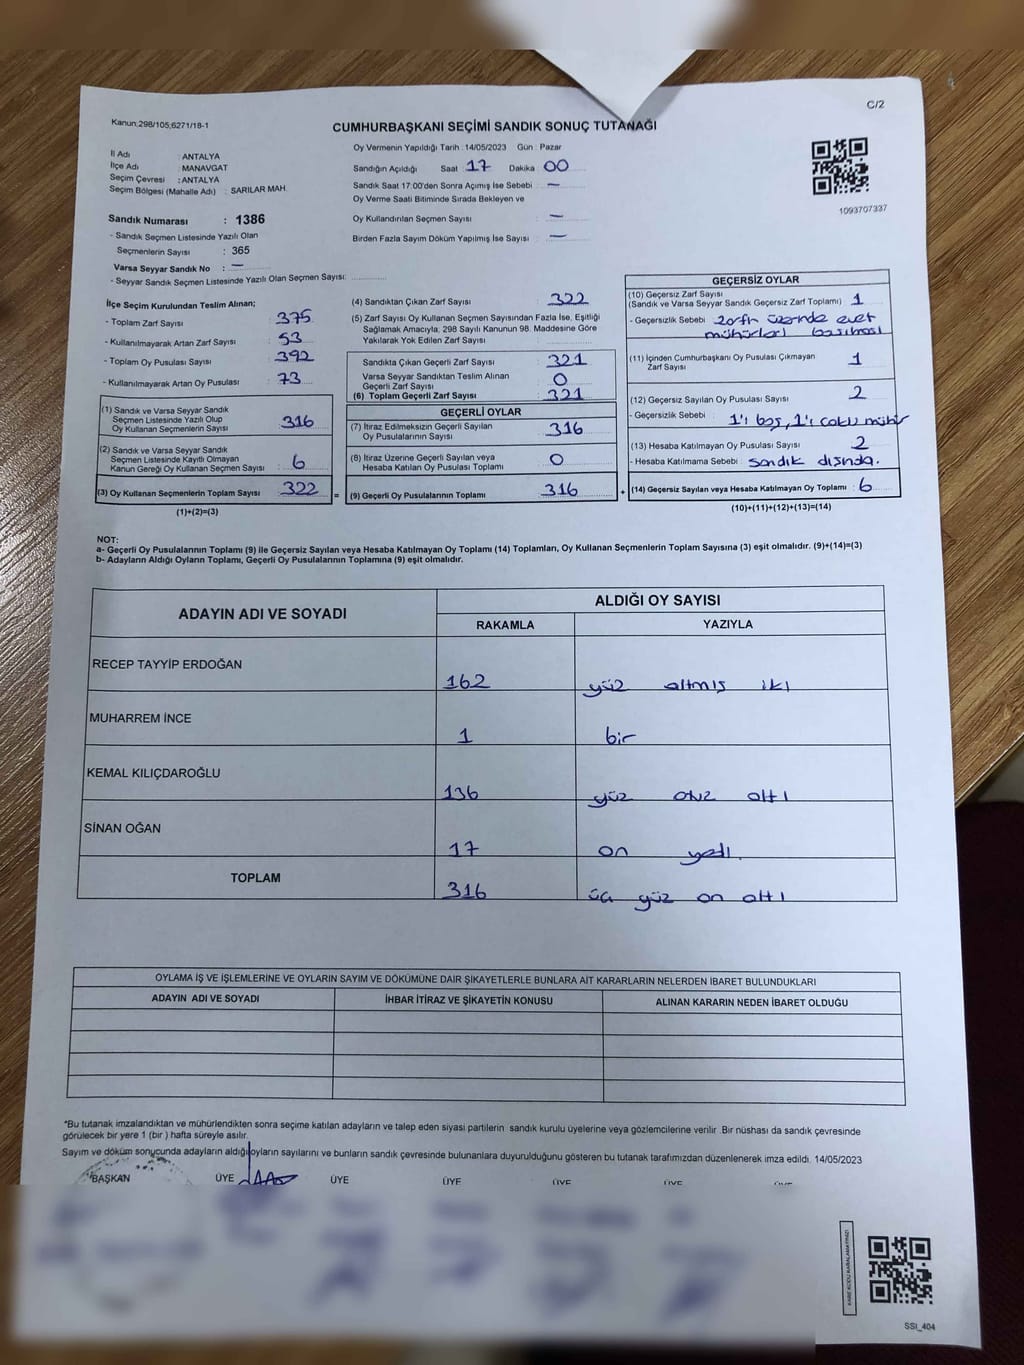 C/2
Kanun:298/105;6271/18-1
CUMHURBAŞKANI SEÇİMİ SANDIK SONUÇ TUTANAĞI
İl Adı : ANTALYA
İlçe Adı : MANAVGAT
Seçim Çevresi : ANTALYA
Seçim Bölgesi (Mahalle Adı) : SARILAR MAH.
Oy Vermenin Yapıldığı Tarih : 14/05/2023 Gün : Pazar
Sandığın Açıldığı Saat 17 Dakika 00
Sandık Saat 17:00'den Sonra Açımış İse Sebebi : —
Oy Verme Saati Bitiminde Sırada Bekleyen ve
Oy Kullandırılan Seçmen Sayısı : —
Birden Fazla Sayım Döküm Yapılmış İse Sayısı : —
1093707337
Sandık Numarası : 1386
- Sandık Seçmen Listesinde Yazılı Olan
Seçmenlerin Sayısı : 365
Varsa Seyyar Sandık No : —
- Seyyar Sandık Seçmen Listesinde Yazılı Olan Seçmen Sayısı:
İlçe Seçim Kurulundan Teslim Alınan;
- Toplam Zarf Sayısı : 375
- Kullanılmayarak Artan Zarf Sayısı : 53
- Toplam Oy Pusulası Sayısı : 392
- Kullanılmayarak Artan Oy Pusulası : 73
(1) Sandık ve Varsa Seyyar Sandık
Seçmen Listesinde Yazılı Olup
Oy Kullanan Seçmenlerin Sayısı : 316
(2) Sandık ve Varsa Seyyar Sandık
Seçmen Listesinde Kayıtlı Olmayan
Kanun Gereği Oy Kullanan Seçmen Sayısı : 6
(3) Oy Kullanan Seçmenlerin Toplam Sayısı : 322 =
(1)+(2)=(3)
(4) Sandıktan Çıkan Zarf Sayısı : 322
(5) Zarf Sayısı Oy Kullanan Seçmen Sayısından Fazla İse, Eşitliği
Sağlamak Amacıyla, 298 Sayılı Kanunun 98. Maddesine Göre
Yakılarak Yok Edilen Zarf Sayısı :
Sandıkta Çıkan Geçerli Zarf Sayısı : 321
Varsa Seyyar Sandıktan Teslim Alınan
Geçerli Zarf Sayısı : 0
(6) Toplam Geçerli Zarf Sayısı : 321
GEÇERLİ OYLAR
(7) İtiraz Edilmeksizin Geçerli Sayılan
Oy Pusulalarının Sayısı : 316
(8) İtiraz Üzerine Geçerli Sayılan veya
Hesaba Katılan Oy Pusulası Toplamı : 0
(9) Geçerli Oy Pusulalarının Toplamı : 316 +
GEÇERSİZ OYLAR
(10) Geçersiz Zarf Sayısı
(Sandık ve Varsa Seyyar Sandık Geçersiz Zarf Toplamı) : 1
- Geçersizlik Sebebi : zarfın üzerinde evet
mühürleri basılması
(11) İçinden Cumhurbaşkanı Oy Pusulası Çıkmayan
Zarf Sayısı : 1
(12) Geçersiz Sayılan Oy Pusulası Sayısı : 2
- Geçersizlik Sebebi : 1'i boş, 1'i çoklu mühür
(13) Hesaba Katılmayan Oy Pusulası Sayısı : 2
- Hesaba Katılmama Sebebi : sandık dışında.
(14) Geçersiz Sayılan veya Hesaba Katılmayan Oy Toplamı : 6
(10)+(11)+(12)+(13)=(14)
NOT:
a- Geçerli Oy Pusulalarının Toplamı (9) ile Geçersiz Sayılan veya Hesaba Katılmayan Oy Toplamı (14) Toplamları, Oy Kullanan Seçmenlerin Toplam Sayısına (3) eşit olmalıdır. (9)+(14)=(3)
b- Adayların Aldığı Oyların Toplamı, Geçerli Oy Pusulalarının Toplamına (9) eşit olmalıdır.
ADAYIN ADI VE SOYADI
ALDIĞI OY SAYISI
RAKAMLA YAZIYLA
RECEP TAYYİP ERDOĞAN 162 yüz altmış iki
MUHARREM İNCE 1 bir
KEMAL KILIÇDAROĞLU 136 yüz otuz altı
SİNAN OĞAN 17 on yedi.
TOPLAM 316 üç yüz on altı
OYLAMA İŞ VE İŞLEMLERİNE VE OYLARIN SAYIM VE DÖKÜMÜNE DAİR ŞİKAYETLERLE BUNLARA AİT KARARLARIN NELERDEN İBARET BULUNDUKLARI
ADAYIN ADI VE SOYADI İHBAR İTİRAZ VE ŞİKAYETİN KONUSU ALINAN KARARIN NEDEN İBARET OLDUĞU
*Bu tutanak imzalandıktan ve mühürlendikten sonra seçime katılan adayların ve talep eden siyasi partilerin sandık kurulu üyelerine veya gözlemcilerine verilir .Bir nüshası da sandık çevresinde
görülecek bir yere 1 (bir ) hafta süreyle asılır.
Sayım ve döküm sonucunda adayların aldığı oyların sayılarını ve bunların sandık çevresinde bulunanlara duyurulduğunu gösteren bu tutanak tarafımızdan düzenlenerek imza edildi. 14/05/2023
BAŞKAN ÜYE ÜYE ÜYE ÜYE ÜYE ÜYE
KARE KODU KARALAMAYINIZ!
SSI_404